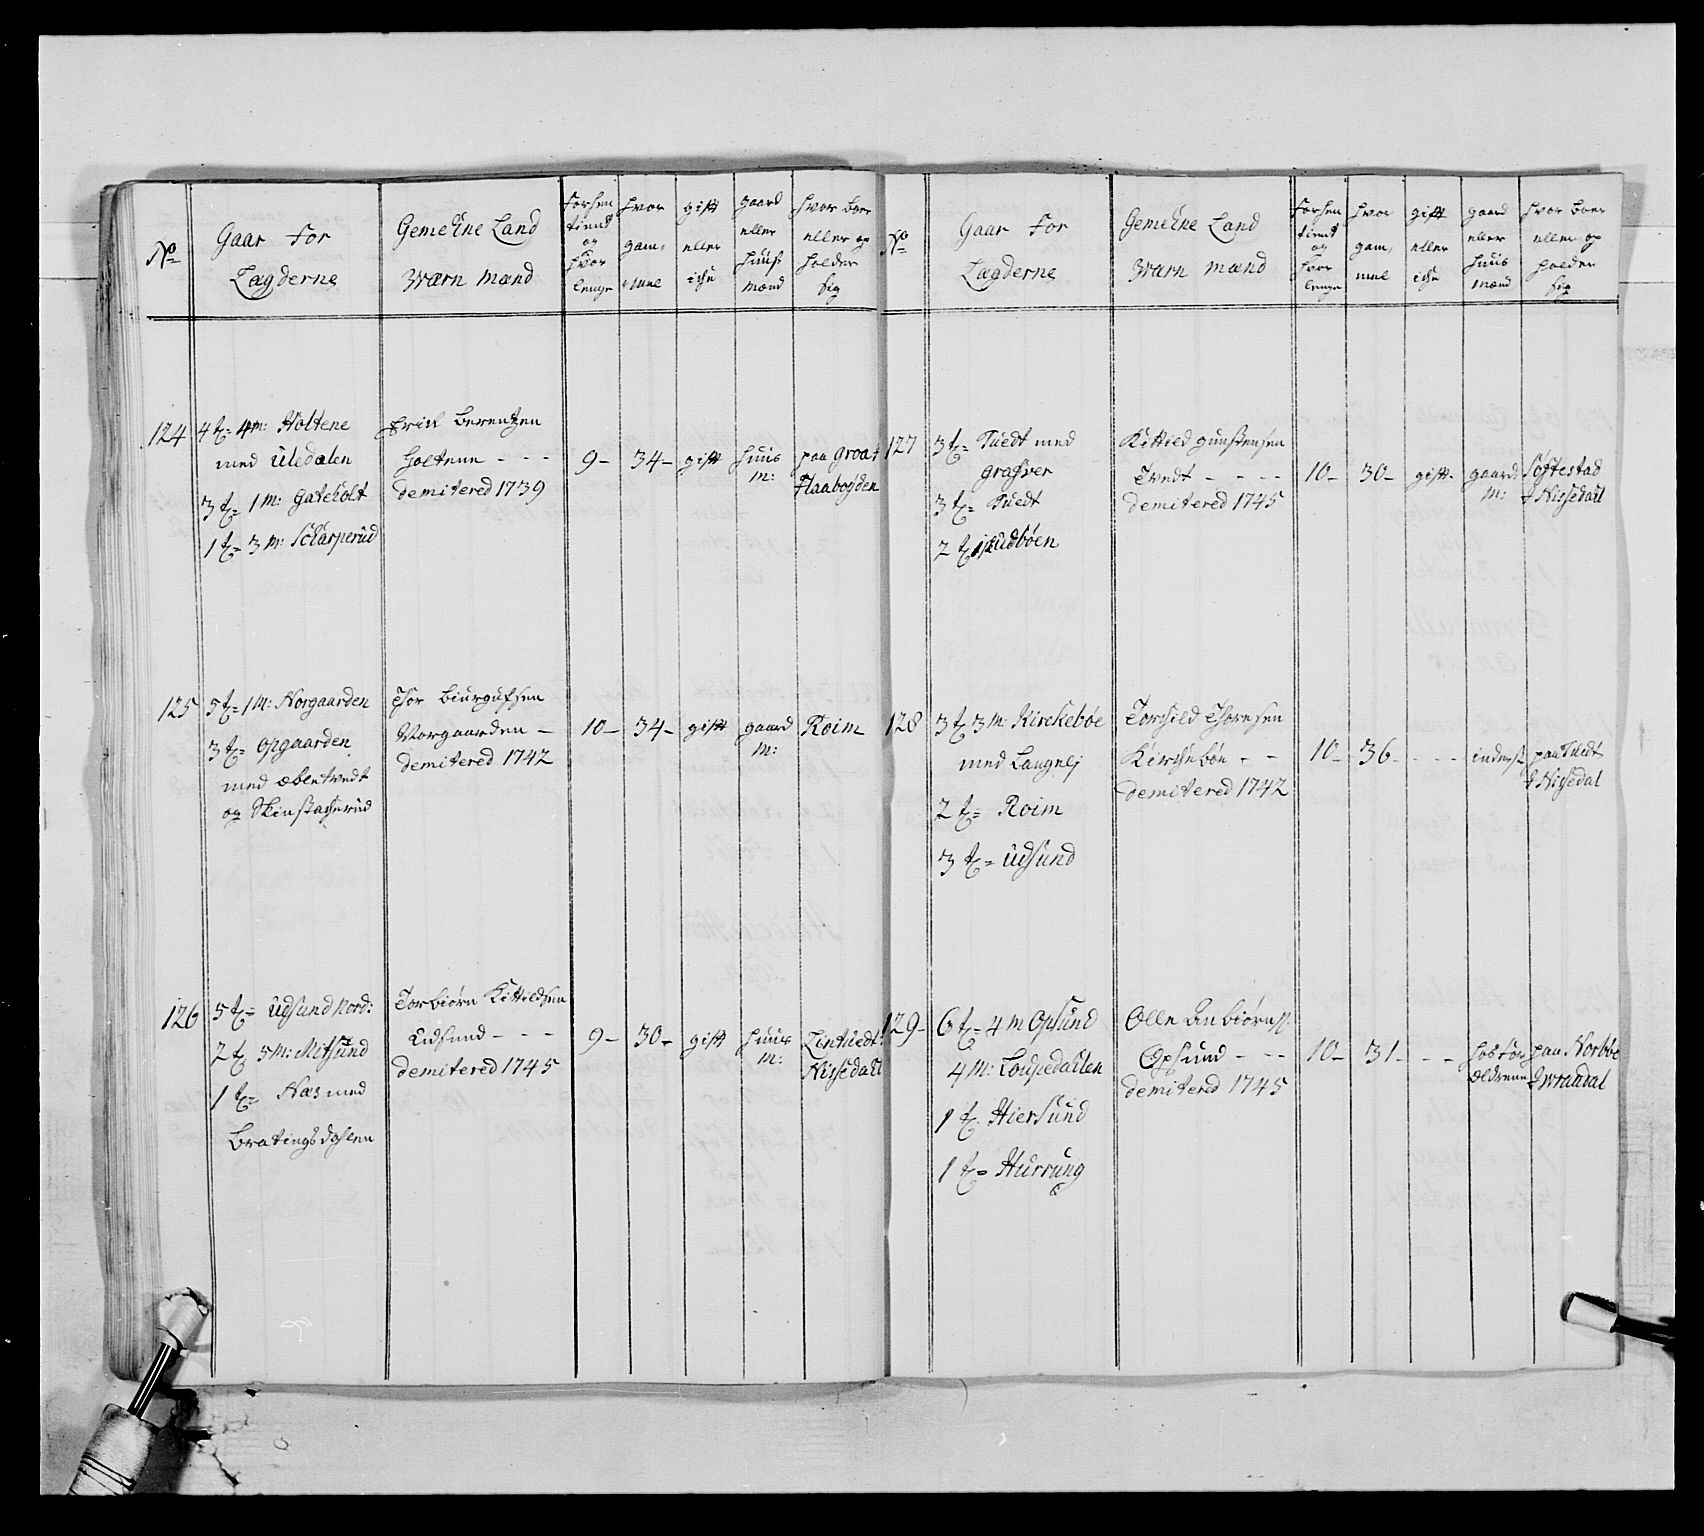 No
Gaar For
Lagderne
Gemehne Land
Wærn Mænd
forhen
tient
og
hvor
lenge
hvor
gam,
mel
gift
eller
iche
gaard
eller
huus
mænd
hvor boer
eller op
holder
sig
124
4 t= 4 m: Holtene
med Uledalen
3 t= 1 m: gateholt
1 t= 3 m: Scharperud
Erik Berentzen
Holtene - - -
demitered 1739
9-
34-
gift
huus
m:
paa Groat
Flaabøyden
125
5 t= 1 m: Norgaarden
3 t= opgaarden
med æbentvedt
og
Thor Biurgufsen
Norgaarden -
demitered 1742
10-
34-
gift
gaard
m:
Roim
126
5 t= Udsund Nord:
2 t 5 m: Mitsund
1 t= Næs med
Bratingsdahlen
Torbiørn Kittildsen
Udsund - - -
demitered 1745
9-
30-
gift
huus
m:
Lintuedt
Nissedahl
No
Gaar For
Lagderne
Gemehne Land
Wærn Mænd
forhen
tient
og
hvor
lenge
hvor
gam,
mel
gift
eller
iche
gaard
eller
huus
mænd
hvor boer
eller op
holder
sig
127
3 t= Tuedt med
Grafver
3 t= Tuedt
2 t
Kittied gunstensen
Tvedt - - - -
demitered 1745
10-
30-
gift-
gaard:
m:
Søftestad
J Nissedahl
128
3 t 3 m: Kirckebøe
med Langnej
2 t= Roim
3 t= Udsund
Torchild Thoresen
Kirchebøe - -
demitered 1742
10-
36- - - -
inderst
paa Tuedt
J Nissedal
129-
6 t= 4 m Opsund
4 m: Loupedahlen
1 t. Hiersund
1 t= Hurrung
Olle Anbiørns:
Opsund - - -
demitered 1745
10-
31- - -
hos for
ældrene
paa Norbøe
J Wraadal